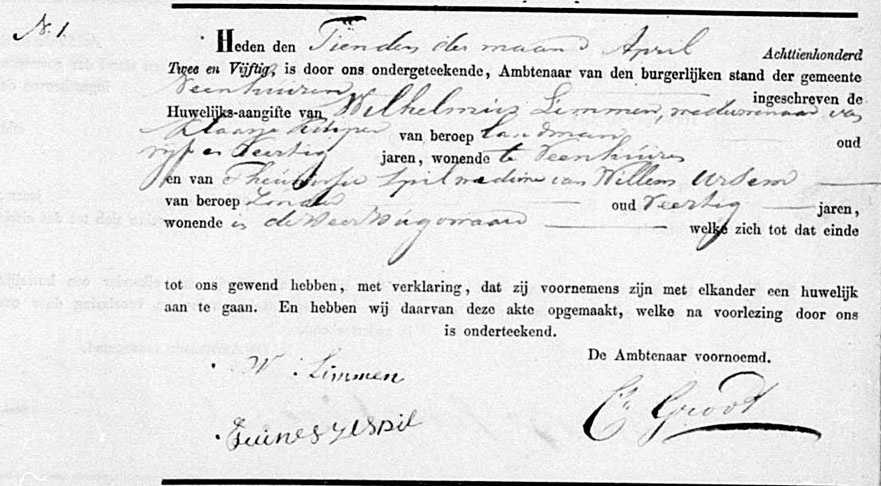 N. 1.
Heden den Tienden der maand April Achttienhonderd
Twee en Vijftig, is door ons ondergeteekende, Ambtenaar van den burgerlijken stand der gemeente
Veenhuizen ingeschreven de
Huwelijks-aangifte van Wilhelmus Limmen, weduwenaar van
Klaasje van beroep Landman oud
vijf en Veertig jaren, wonende te Veenhuizen
en van Spil weduwe van Willem Ursem
van beroep Zonder oud Veertig jaren,
wonende in de welke zich tot dat einde
tot ons gewend hebben, met verklaring, dat zij voornemens zijn met elkander een huwelijk
aan te gaan. En hebben wij daarvan deze akte opgemaakt, welke na voorlezing door ons
is onderteekend.
De Ambtenaar voornoemd.
W Limmen
C. Groot